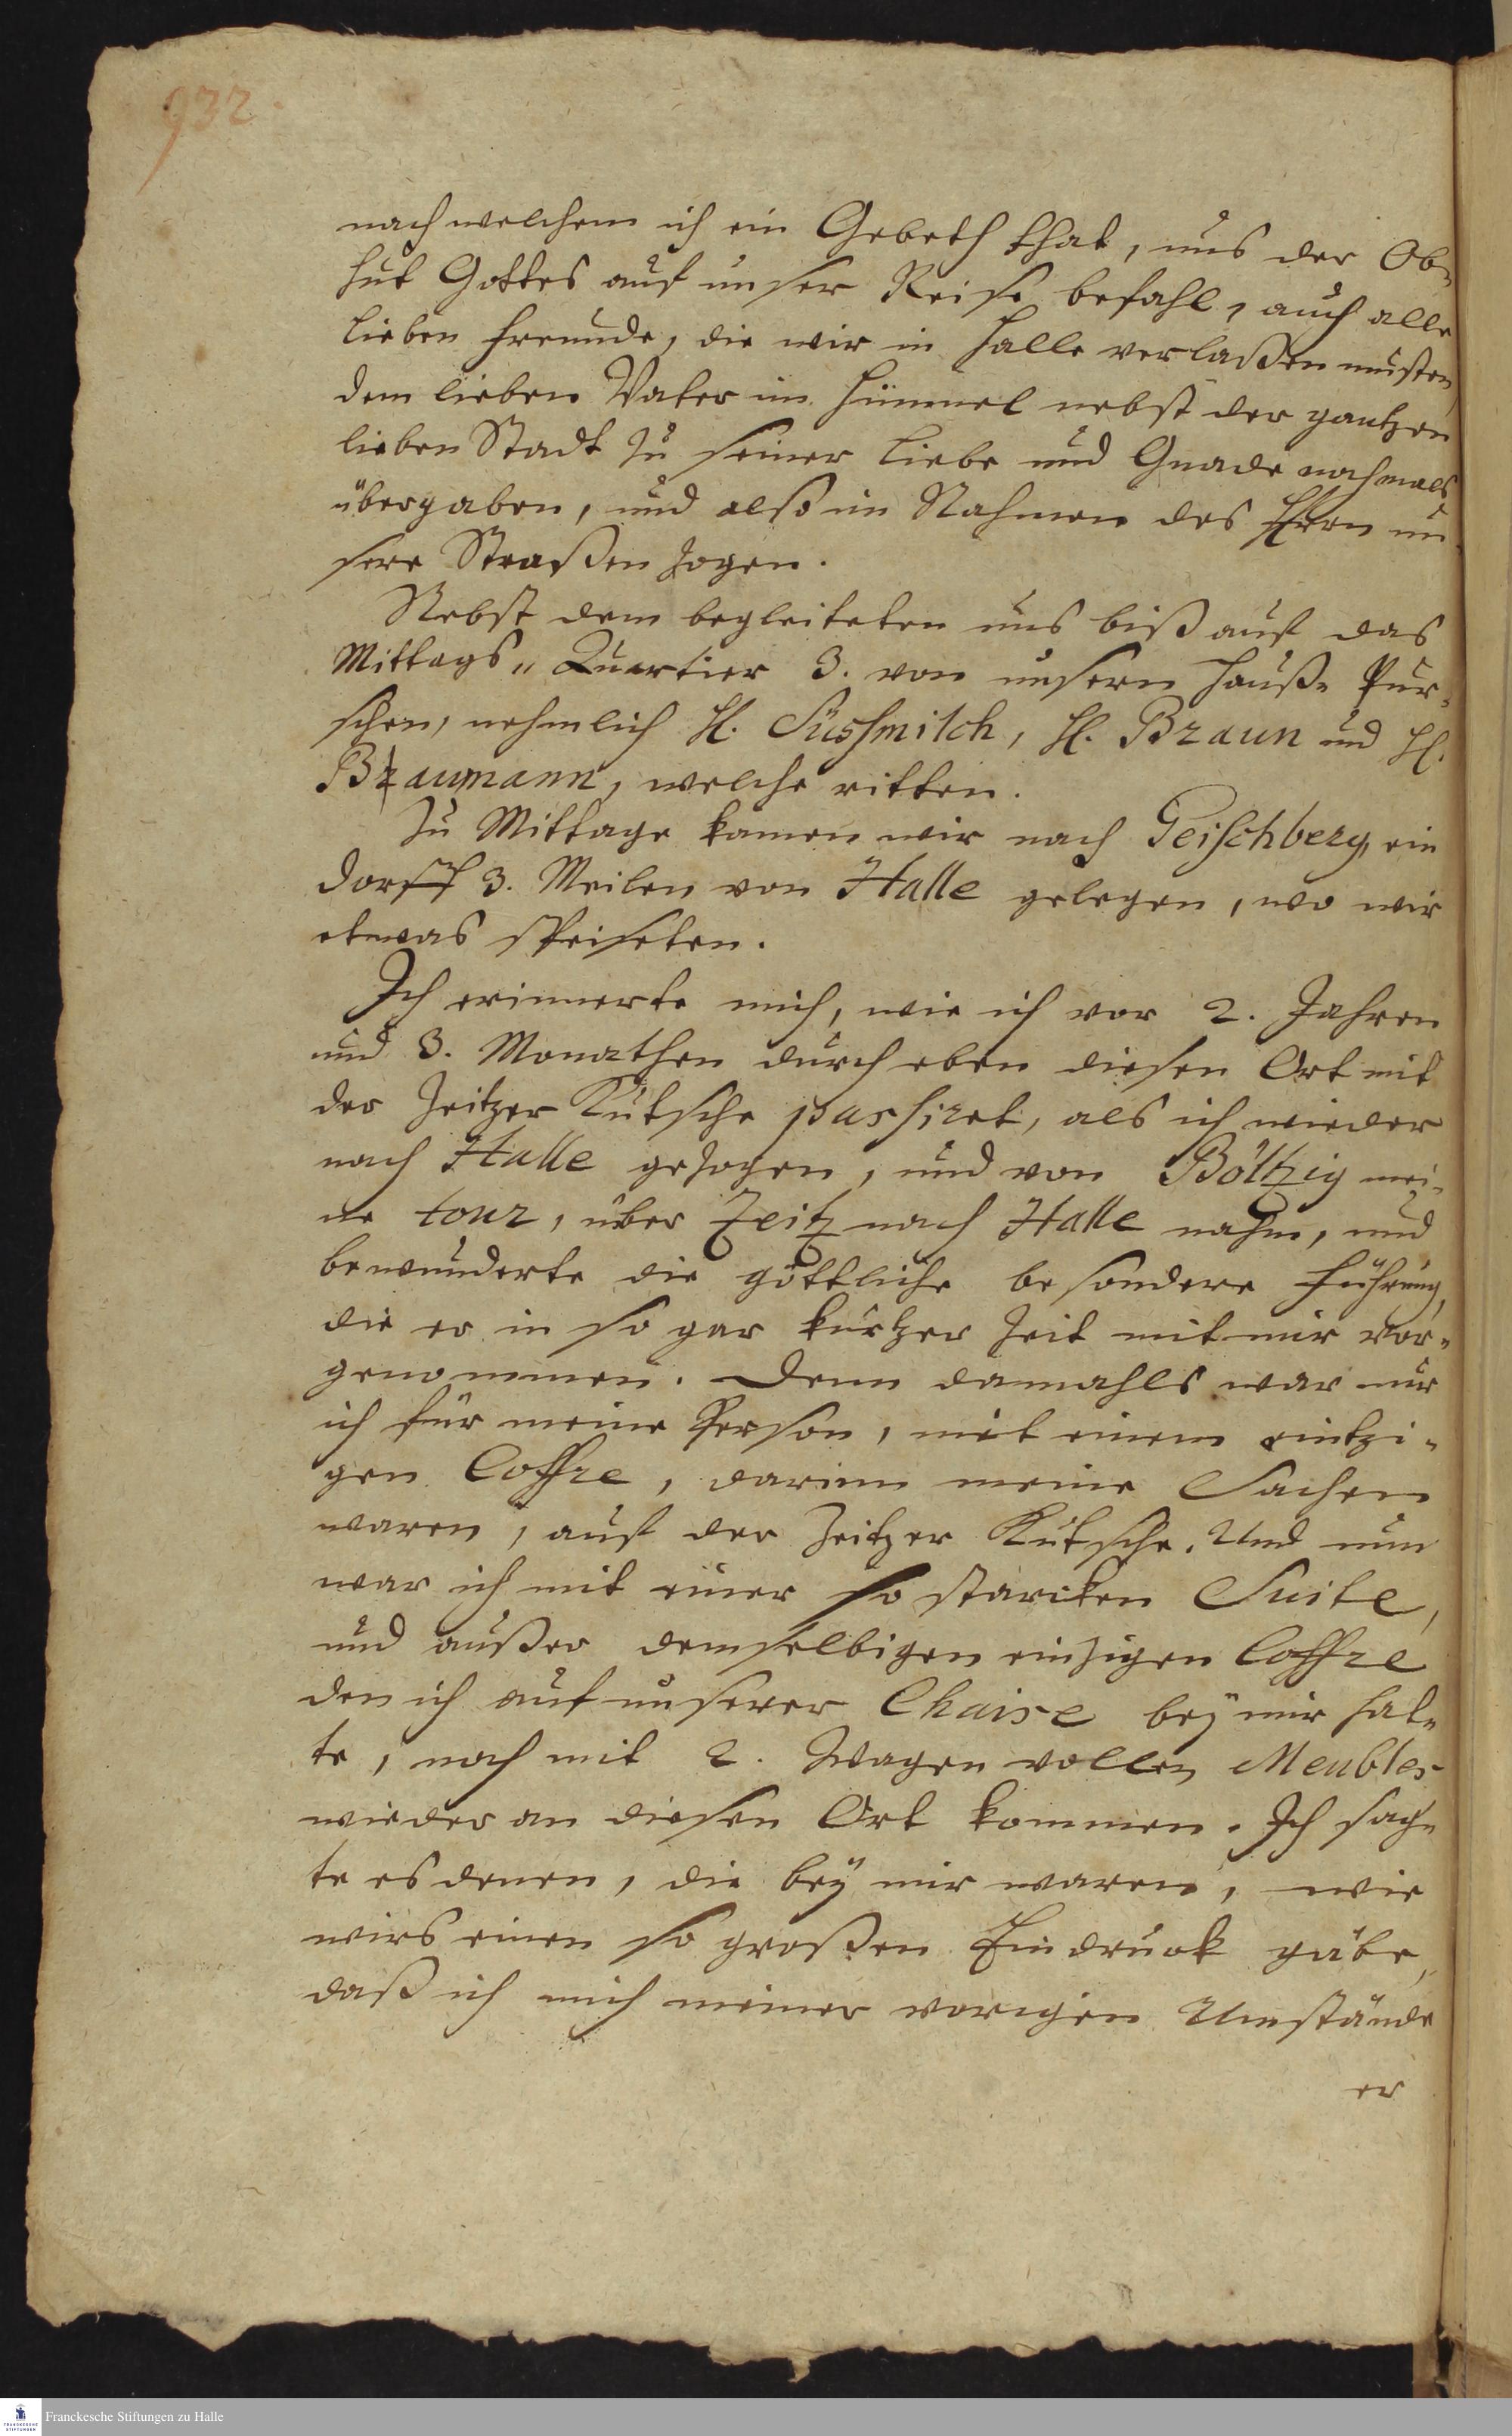 932.
nach welchem ich ein Gebeth that, uns der Ob-
hut Gottes auf unser Reise befahl, auch alle
lieben Freunde, die wir in Halle verlaßen musten,
dem lieben Vater im Himmel nebst der gantzen
lieben Stadt zu seiner Liebe und Gnade nochmals
übergaben, und also im Nahmen des Herrn un-
sere Straßen zogen.
Nebst dem begleiteten uns biß auf das
Mittags-Quartier 3. von unsern Hauß-Pur-
schen, nehmlich H. Süssmilch, H. Braun und H.
Braumann, welche ritten.
Zu Mittage kamen wir nach Teischberg, ein
Dorff 3. Meilen von Halle gelegen, wo wir
etwas speiseten.
Ich erinnerte mich, wie ich vor 2. Jahren
und 3. Monathen durch eben diesen Ort mit
der Zeitzer Kutsche passiret, als ich wieder
nach Halle gezogen, und von Böltzig mei-
ne tour, über Zeitz nach Halle nahm, und
bewunderte die göttliche besondere Führung,
die er in so gar kurtzer Zeit mit mir vor-
genommen. Denn damahls war nur
ich für meine Person, mit einem eintzi-
gen Coffre, darinn meine Sachen
waren, auf der Zeitzer Kutsche. Und nun
war ich mit einer so starcken Suite,
und außer demselbigen einzigen Coffre
den ich auf unserer Chaise bey mir hat-
te, noch mit 2. Wagen vollen Meubles
wieder an diesen Ort kommen. Ich sag-
te es denen, die bey mir waren, wie
mirs einen so großen Eindruck gäbe,
daß ich mich meiner vorigen Umstände
er
Franckesche Stiftungen zu Halle